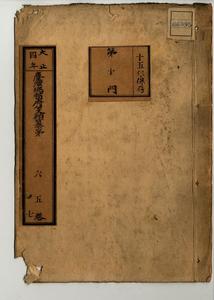 十五年保存
第十門
大正
四年
臺灣總督府公文類纂第
六五卷
七